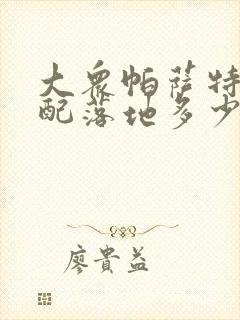 大众帕萨特
配落地多少
廖貴益